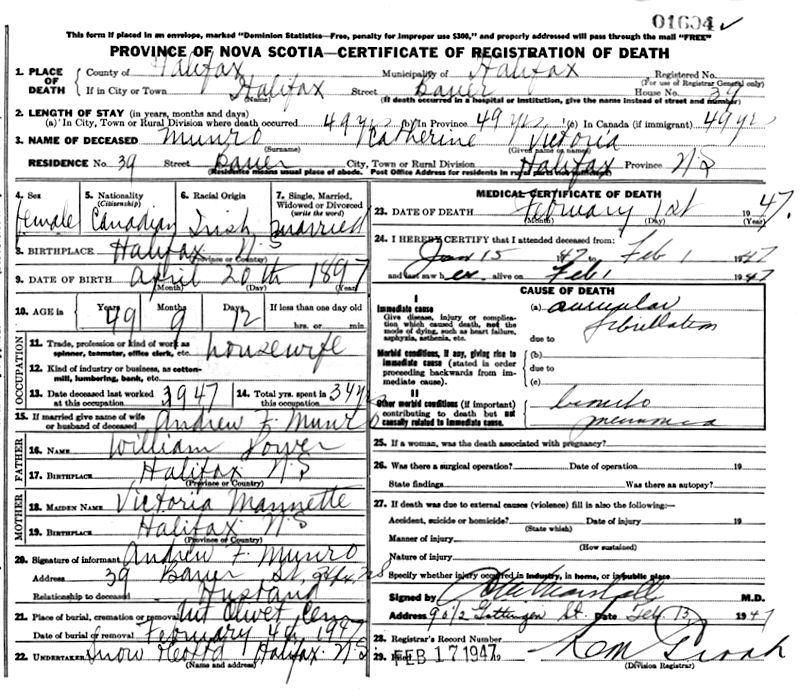 01604
This form if placed in an envelope, marked "Dominion Statistics—Free, penalty for improper use $300," and properly addressed will pass through the mail "FREE"
PROVINCE OF NOVA SCOTIA—CERTIFICATE OF REGISTRATION OF DEATH
1. PLACE OF DEATH { County of Halifax Municipality of Halifax Registered No.
(For use of Registrar General only)
If in City or Town Halifax Street Bauer House No. 39
(Name) (If death occurred in a hospital or institution, give the name instead of street and number)
2. LENGTH OF STAY (in years, months and days)
(a) In City, Town or Rural Division where death occurred 49 yrs (b) In Province 49 yrs (c) In Canada (if immigrant) 49 yrs
3. NAME OF DECEASED Munro Catherine Victoria
(Surname) (Given name or names)
RESIDENCE No. 39 Street Bauer City, Town or Rural Division Halifax Province N.S
(Residence means usual place of abode. Post Office Address for residents in rural parts not sufficient)
4. Sex 5. Nationality (Citizenship) 6. Racial Origin 7. Single, Married, Widowed or Divorced (write the word)
female Canadian Irish married
8. BIRTHPLACE Halifax N.S
(Province or Country)
9. DATE OF BIRTH April 20th 1897
(Month) (Day) (Year)
10. AGE in { Years Months Days If less than one day old
49 9 12 hrs. or min.
OCCUPATION
11. Trade, profession or kind of work as spinner, teamster, office clerk, etc. housewife
12. Kind of industry or business, as cotton-mill, lumbering, bank, etc.
13. Date deceased last worked at this occupation 3947 14. Total yrs. spent in this occupation 34 yrs
15. If married give name of wife or husband of deceased Andrew F. Munro
FATHER
16. Name William
17. Birthplace Halifax N.S
(Province or Country)
MOTHER
18. Maiden Name Victoria Mannette
19. Birthplace Halifax N.S
(Province or Country)
20. Signature of informant Andrew F. Munro
Address 39 Bauer St, Hfx, NS
Relationship to deceased Husband
21. Place of burial, cremation or removal Mt Olivet Cem
Date of burial or removal February 4th 1947
22. Undertaker Snow Halifax N.S
(Name and address)
MEDICAL CERTIFICATE OF DEATH
23. DATE OF DEATH February 1st 1947.
(Month) (Day) (Year)
24. I HEREBY CERTIFY that I attended deceased from:
Jan 15 1947 to Feb 1 1947
and last saw her alive on Feb 1 1947
CAUSE OF DEATH
I
Immediate cause (a) auricular fibrillation
Give disease, injury or complication which caused death, not the mode of dying, such as heart failure, asphyxia, asthenia, etc.
due to
Morbid conditions, if any, giving rise to immediate cause (stated in order proceeding backwards from immediate cause).
(b)
due to
(c)
II
Other morbid conditions (if important) contributing to death but not causally related to immediate cause. broncho pneumonia
25. If a woman, was the death associated with pregnancy?
26. Was there a surgical operation? Date of operation 19
State findings Was there an autopsy?
27. If death was due to external causes (violence) fill in also the following:—
Accident, suicide or homicide? Date of injury 19
(State which)
Manner of injury
(How sustained)
Nature of injury
Specify whether injury occurred in industry, in home, or in public place
Signed by Marshall M.D.
Address 90 1/2 Gottingen St. Date Feb. 13 1947
28. Registrar's Record Number
29. Filed FEB 17 1947 19
(Division Registrar)